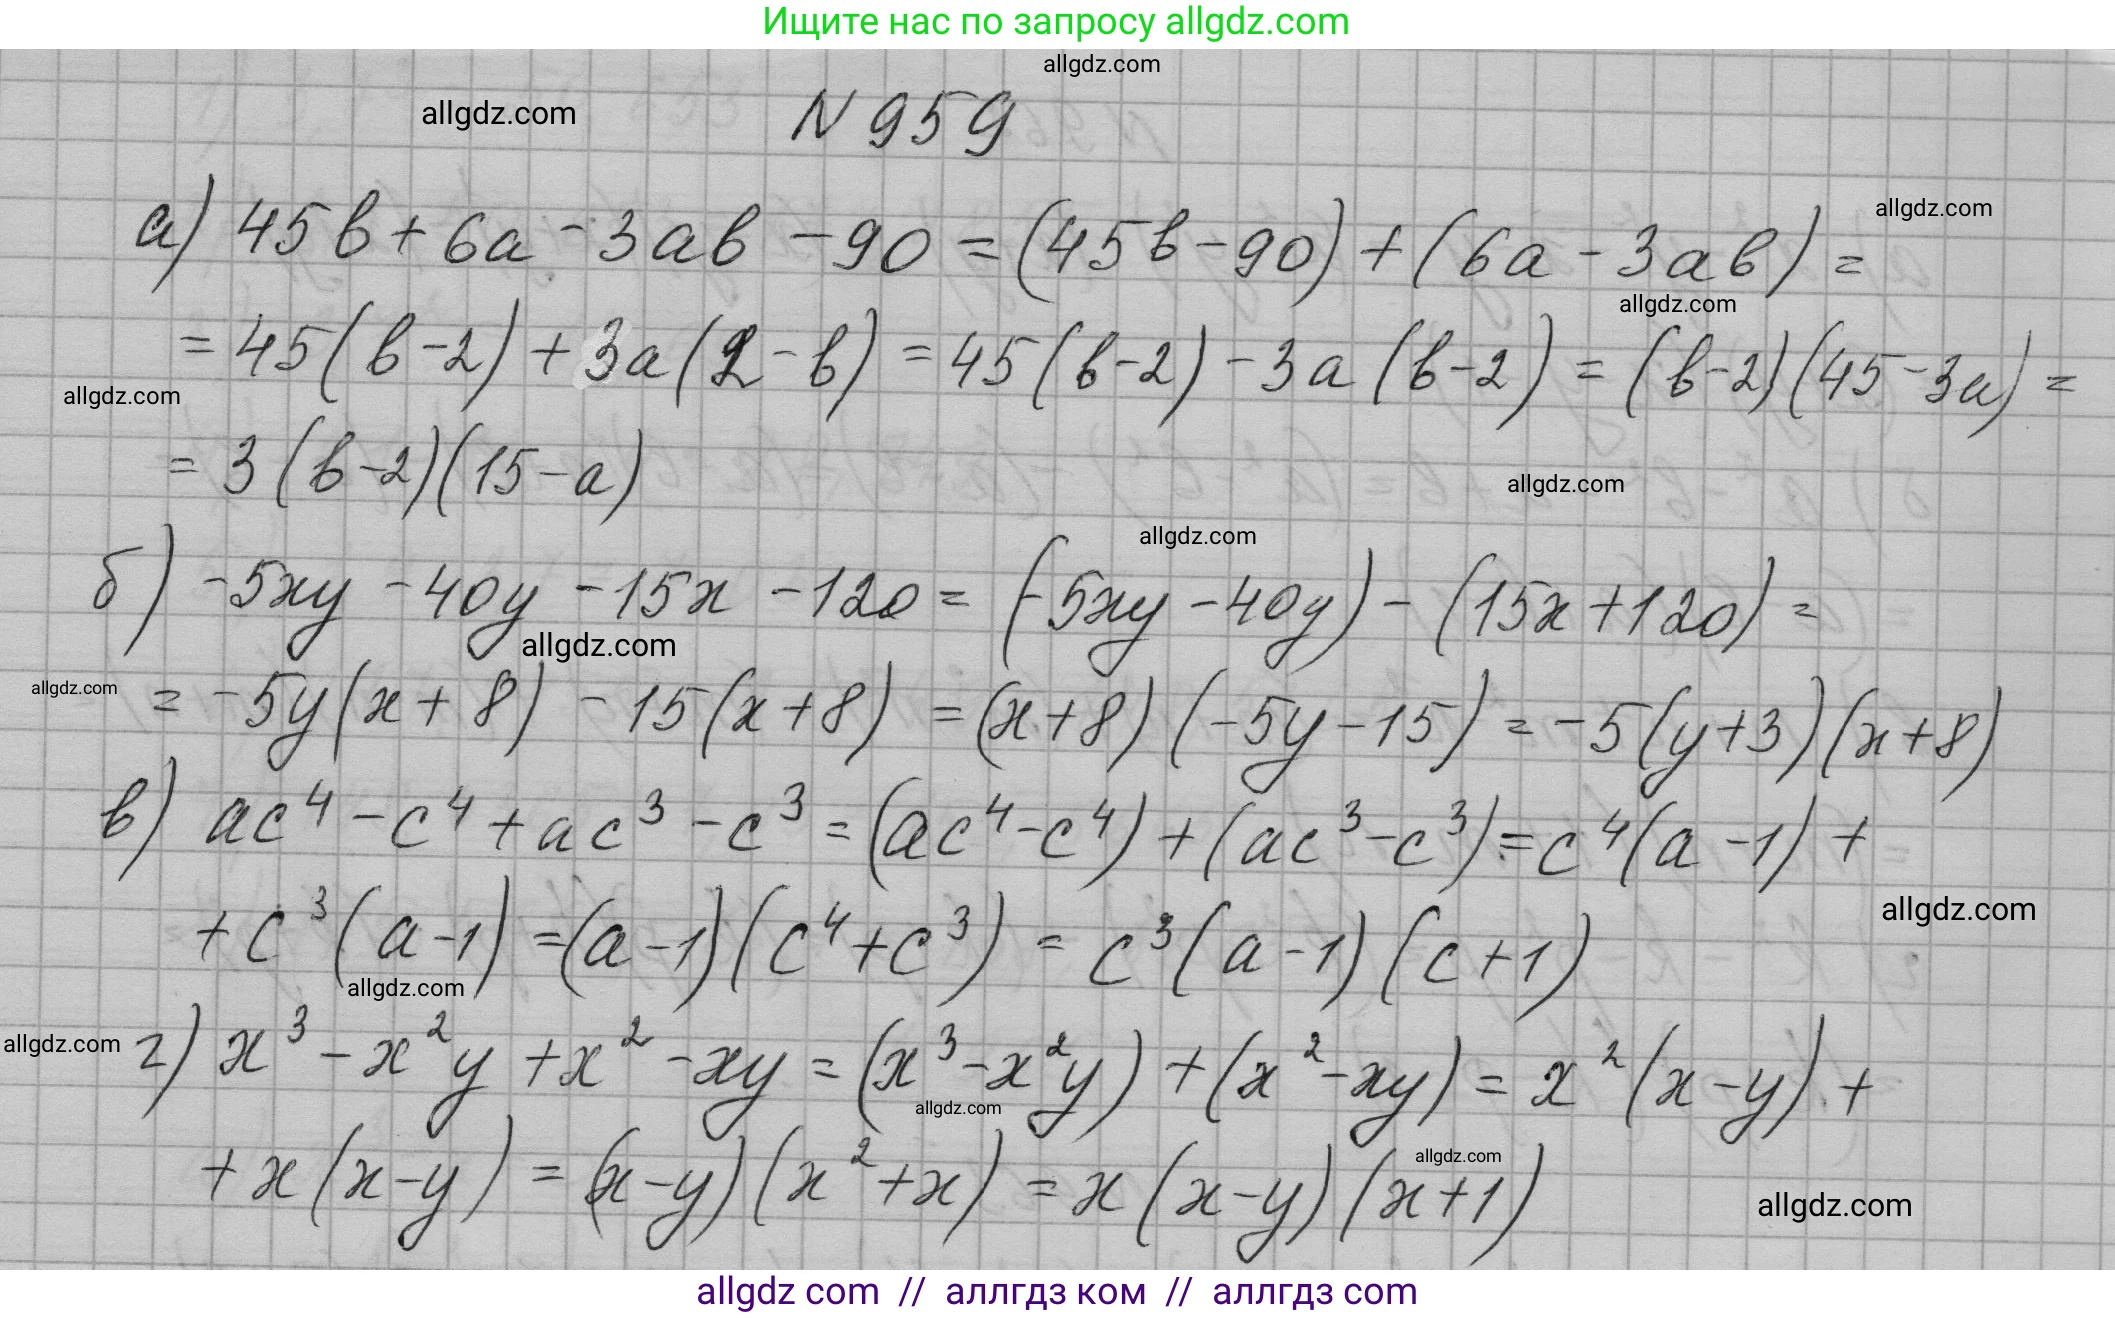 Ищите нас по запросу allgdz.com
allgdz.com
allgdz.com
N 959
а) 45b + 6a - 3ab - 90 = (45b - 90) + (6a - 3ab) =
allgdz.com
allgdz.com
= 45(b-2) + 3a(2-b) = 45(b-2) - 3a(b-2) = (b-2)(45-3a) =
allgdz.com
= 3(b-2)(15-a)
allgdz.com
allgdz.com
б) -5xy - 40y - 15x - 120 = (-5xy - 40y) - (15x + 120) =
allgdz.com
allgdz.com
= -5y(x+8) - 15(x+8) = (x+8)(-5y-15) = -5(y+3)(x+8)
в) ac⁴ - c⁴ + ac³ - c³ = (ac⁴ - c⁴) + (ac³ - c³) = c⁴(a-1) +
allgdz.com
+ c³(a-1) = (a-1)(c⁴+c³) = c³(a-1)(c+1)
allgdz.com
allgdz.com
г) x³ - x²y + x² - xy = (x³ - x²y) + (x² - xy) = x²(x-y) +
allgdz.com
allgdz.com
+ x(x-y) = (x-y)(x²+x) = x(x-y)(x+1)
allgdz.com
allgdz com // аллгдз ком // аллгдз com